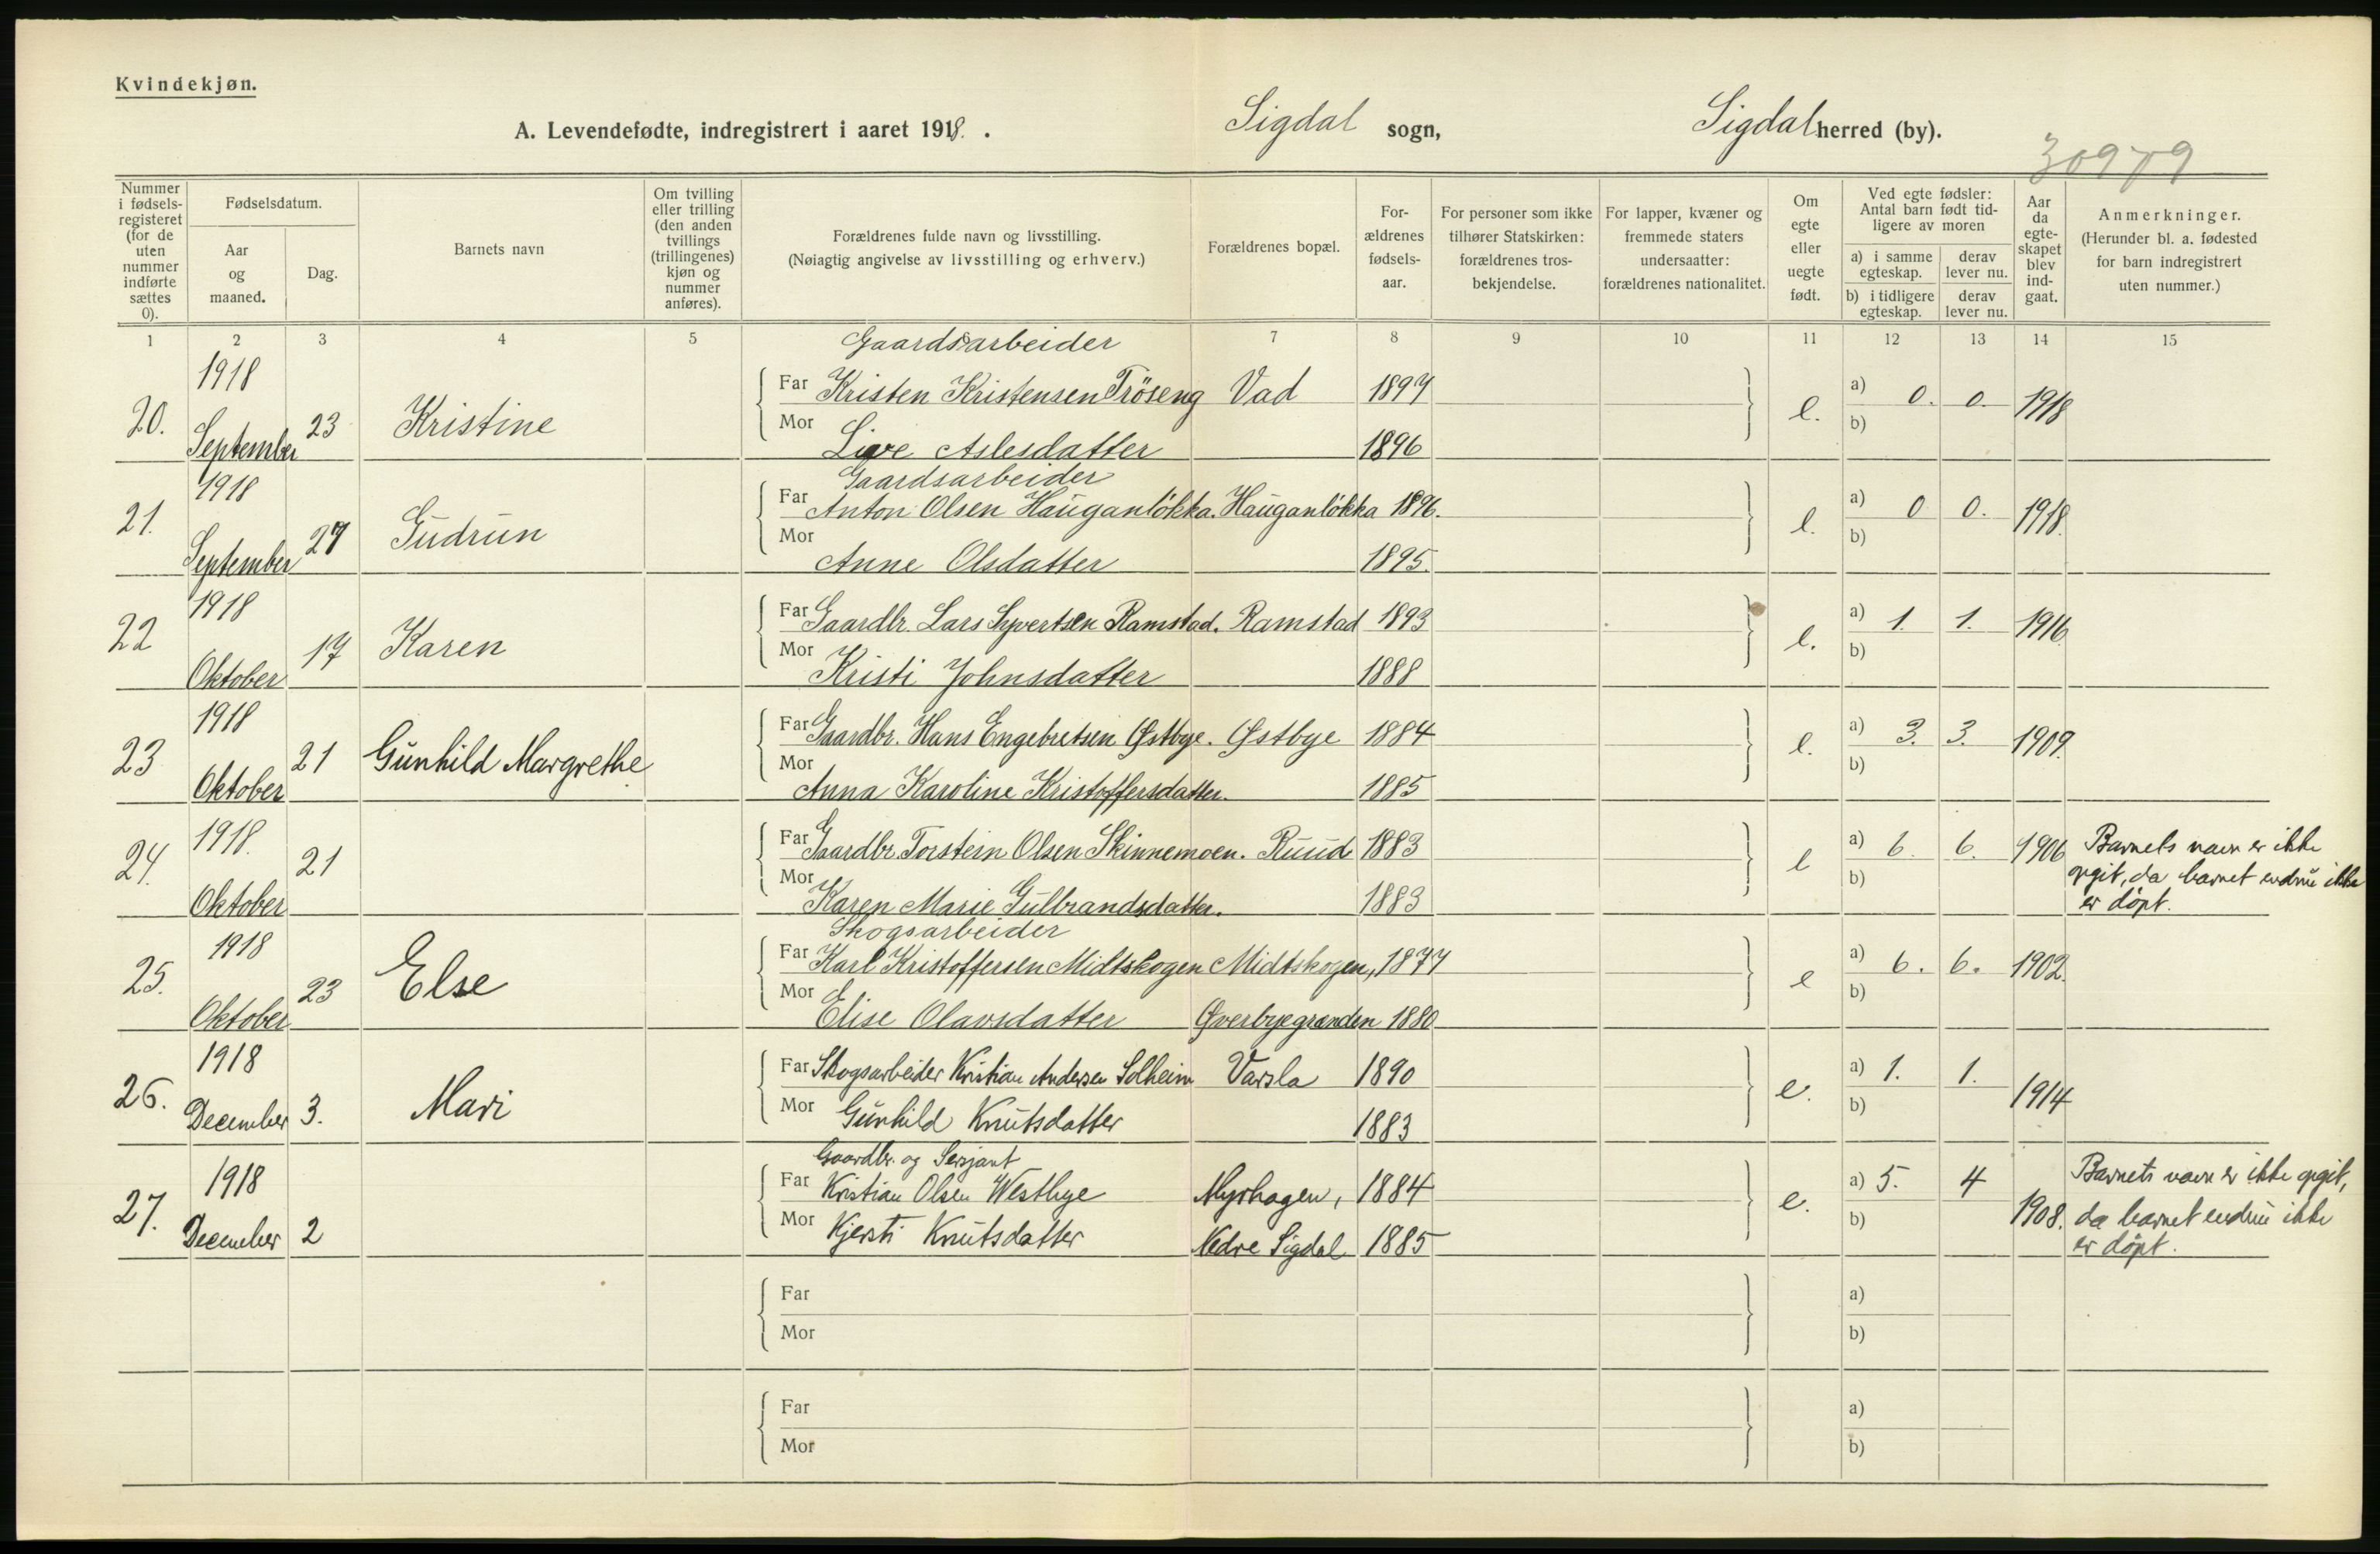 Kvindekjøn.
A. Levendefødte, indregistrert i aaret 1918. .
Sigdal sogn,
Sigdal herred (by).
30979
Nummer i fødsels-registeret (for de uten nummer indførte sættes 0).
Fødselsdatum.
Aar og maaned.
Dag.
Barnets navn
Om tvilling eller trilling (den anden tvillings (trillingenes) kjøn og nummer anføres).
Forældrenes fulde navn og livsstilling.
(Nøiagtig angivelse av livsstilling og erhverv.)
Forældrenes bopæl.
For-ældrenes fødsels-aar.
For personer som ikke tilhører Statskirken: forældrenes tros-bekjendelse.
For lapper, kvæner og fremmede staters undersaatter: forældrenes nationalitet.
Om egte eller uegte født.
Ved egte fødsler: Antal barn født tid-ligere av moren
a) i samme egteskap. derav lever nu.
b) i tidligere egteskap. derav lever nu.
Aar da egte-skapet blev ind-gaat.
Anmerkninger.
(Herunder bl. a. fødested for barn indregistrert uten nummer.)
1 2 3 4 5 7 8 9 10 11 12 13 14 15
Gaardsarbeider
20. 1918 September 23 Kristine
Far Kristen Kristensen Tröseng Vad 1897 e. a) 0. 0. 1918
Mor Live Aslesdatter 1896 b)
Gaardsarbeider
21. 1918 September 27 Gudrun
Far Anton Olsen Hauganlökka. Hauganlökka 1896. e. a) 0 0. 1918.
Mor Anne Olsdatter 1895. b)
22 1918 Oktober 17 Karen
Far Gaardbr. Lars Syvertsen Ramstad. Ramstad 1893 e. a) 1. 1. 1916
Mor Kristi Johnsdatter 1888 b)
23 1918 Oktober 21 Gunhild Margrethe
Far Gaardbr. Hans Engebretsen Østbye. Østbye 1884 e. a) 3. 3. 1909.
Mor Anna Karoline Kristoffersdatter. 1885 b)
24. 1918. Oktober 21
Far Gaardbr. Torstein Olsen Skinnemoen. Ruud 1883 e a) 6. 6. 1906 Barnets navn er ikke
Mor Karen Marie Gulbrandsdatter. 1883 b) opgit, da barnet endnu ikke
er döpt.
Skogsarbeider
25. 1918 Oktober 23 Else
Far Karl Kristoffersen Midtskogen Midtskogen, 1877 e a) 6. 6. 1902.
Mor Elise Olavsdatter Øverbyegranden 1880 b)
26. 1918 December 3. Mari
Far Skogsarbeider Kristian Andersen Solheim Varsla 1890 e. a) 1. 1. 1914
Mor Gunhild Knutsdatter 1883 b)
Gaardbr. og Sersjant
27. 1918 December 2
Far Kristian Olsen Westbye Myrhagen, 1884 e. a) 5. 4 1908. Barnets navn er ikke opgit,
Mor Kjersti Knutsdatter Nedre Sigdal 1885 b) da barnet endnu ikke
er döpt.
Far a)
Mor b)
Far a)
Mor b)